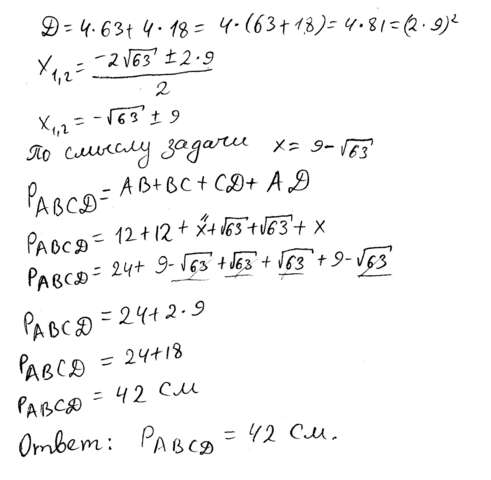 D = 4·63 + 4·18 = 4·(63+18) = 4·81 = (2·9)²
x₁,₂ = (-2√63 ± 2·9)/2
x₁,₂ = -√63 ± 9
По смыслу задачи x = 9-√63
P_ABCD = AB + BC + CD + AD
P_ABCD = 12 + 12 + x + √63 + √63 + x
P_ABCD = 24 + 9-√63 + √63 + √63 + 9-√63
P_ABCD = 24 + 2·9
P_ABCD = 24+18
P_ABCD = 42 см
Ответ: P_ABCD = 42 см.